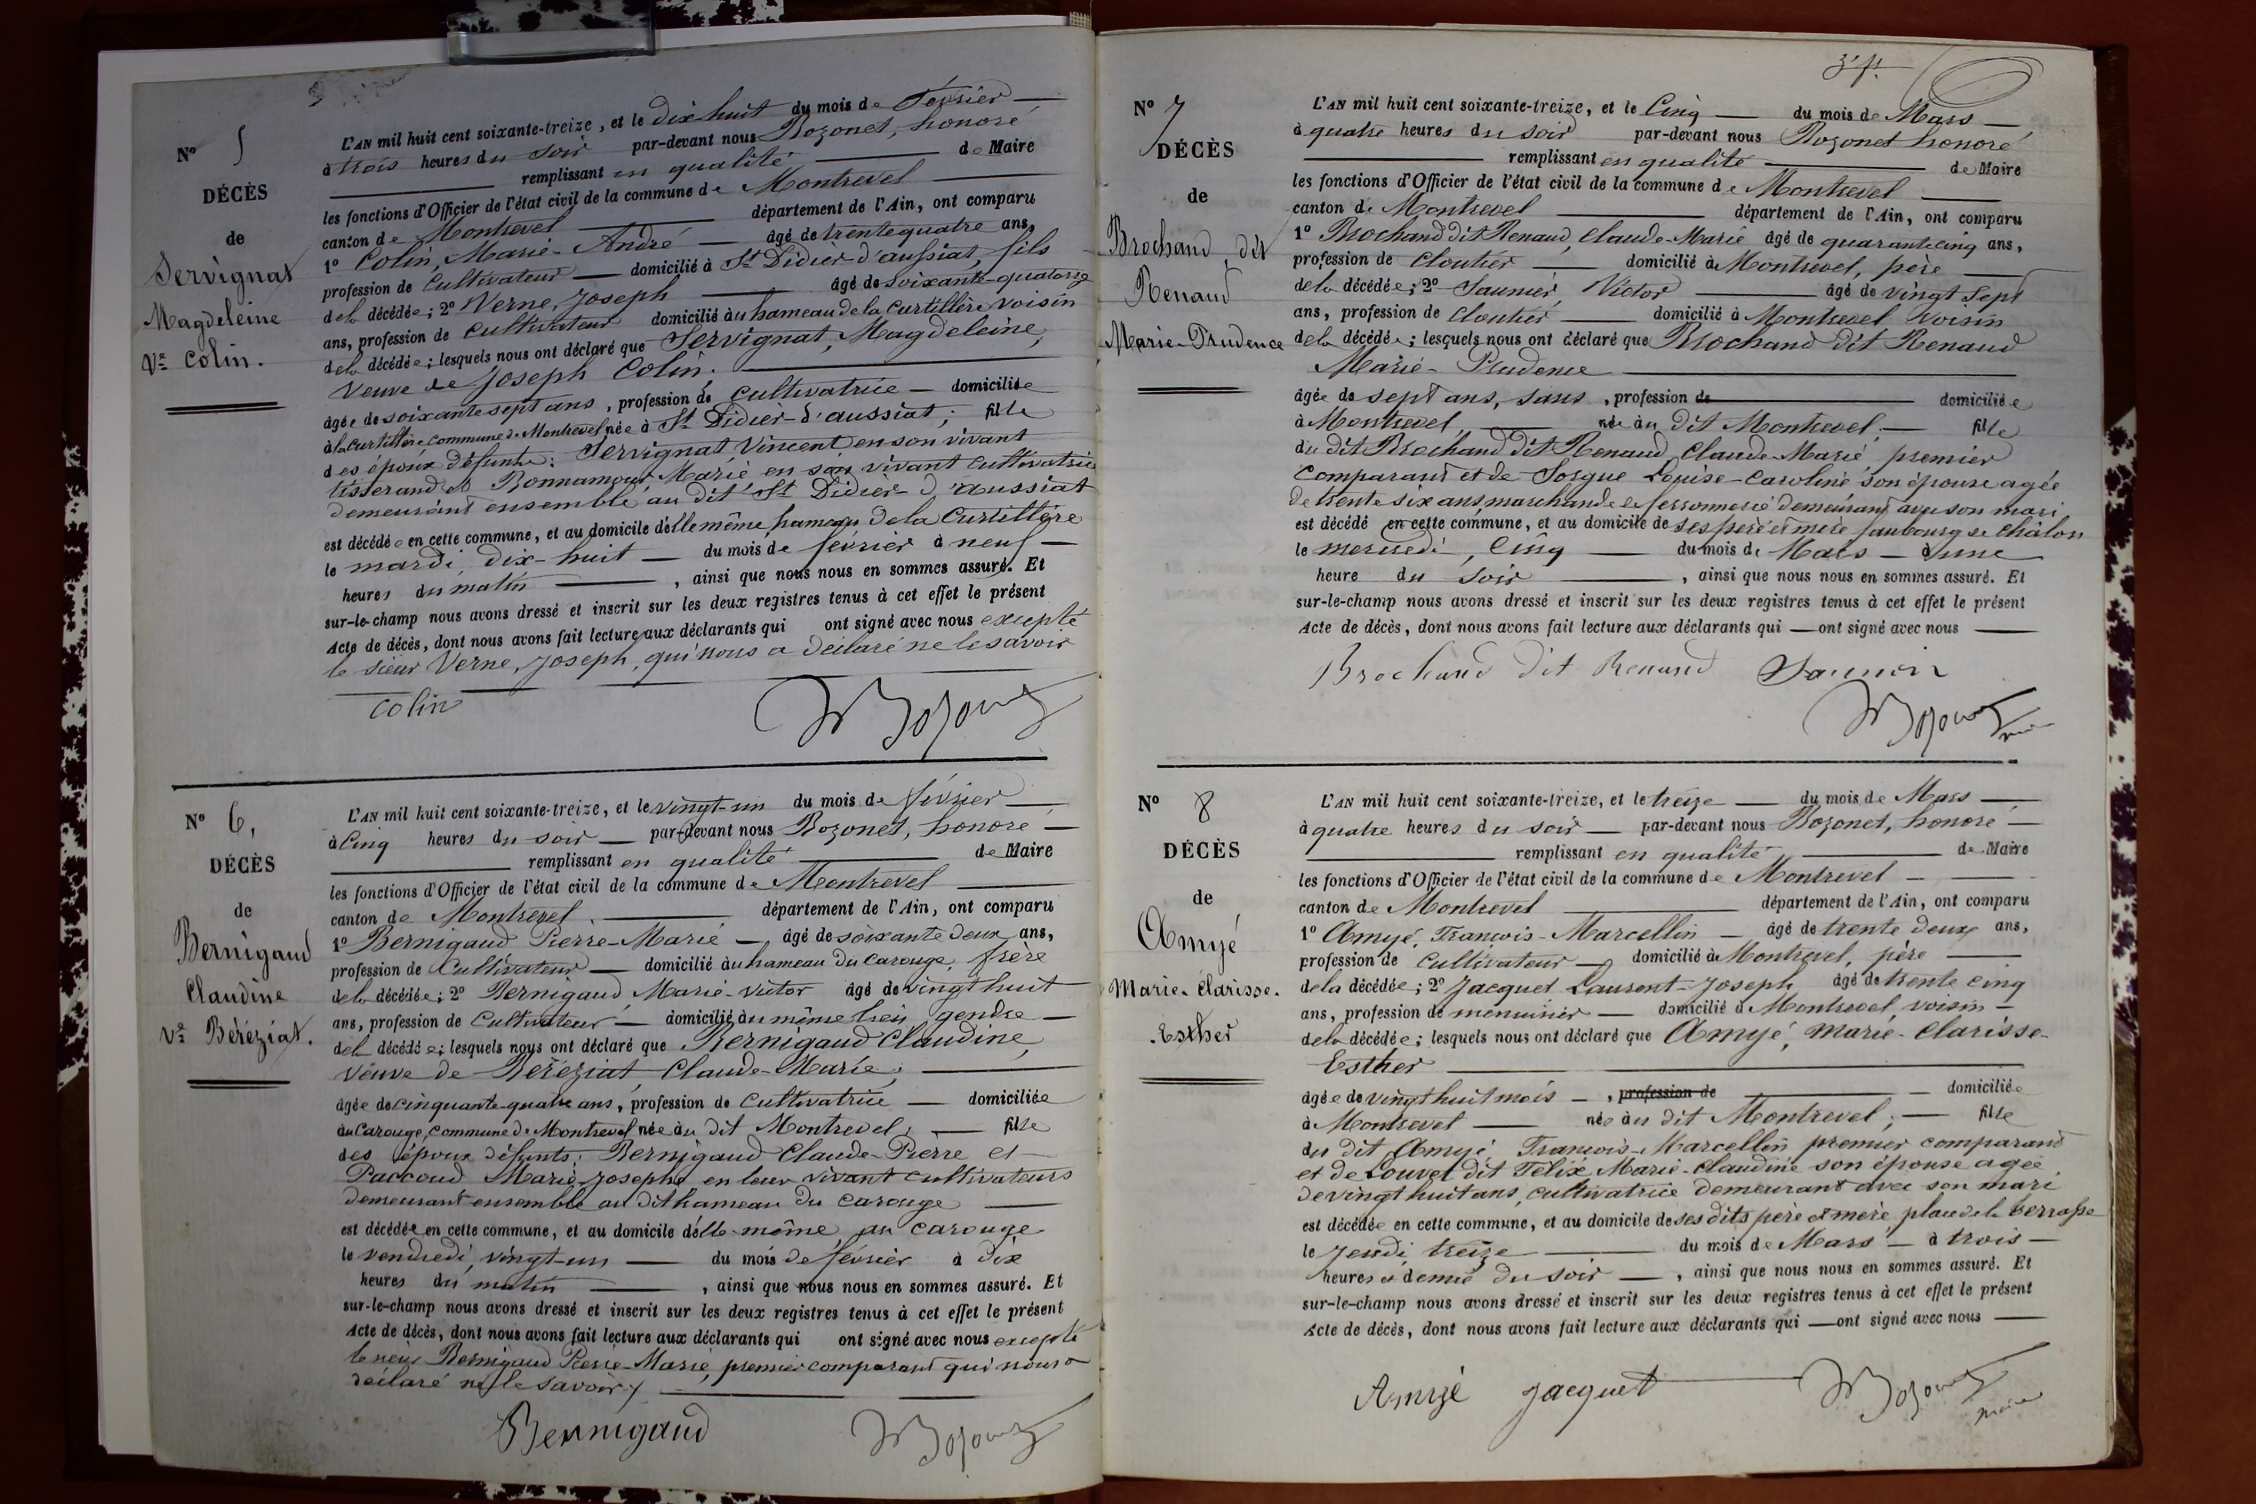 N° 5
DÉCÈS
de
Servignat
Magdeleine
Vve Colin.
L'AN mil huit cent soixante-treize, et le dix huit du mois de Février
à trois heures du soir par-devant nous Bozonet, honoré
remplissant en qualité de Maire
les fonctions d'Officier de l'état civil de la commune de Montrevel
canton de Montrevel département de l'Ain, ont comparu
1° Colin, Marie-André âgé de trente quatre ans,
profession de Cultivateur domicilié à St Didier-d'aussiat, fils
de la décédée; 2° Verne, Joseph âgé de soixante-quatorze
ans, profession de Cultivateur domicilié au hameau de la Curtillère voisin
de la décédée; lesquels nous ont déclaré que Servignat, Magdeleine,
Veuve de Joseph Colin.
âgée de soixante sept ans, profession de Cultivatrice domiciliée
à la Curtillère commune de Montrevel née à St Didier-d'aussiat; fille
des époux défunts: Servignat Vincent en son vivant
tisserand et Bonnamour Marie en son vivant cultivatrice
demeurant ensemble au dit St Didier-d'aussiat
est décédée en cette commune, et au domicile d'elle même hameau de la Curtillère
le mardi, dix-huit du mois de février à neuf
heures du matin, ainsi que nous nous en sommes assuré. Et
sur-le-champ nous avons dressé et inscrit sur les deux registres tenus à cet effet le présent
Acte de décès, dont nous avons fait lecture aux déclarants qui ont signé avec nous excepté
le sieur Verne, Joseph, qui nous a déclaré ne le savoir
Colin Bozonet
N° 6,
DÉCÈS
de
Bernigaud
Claudine
Vve Béréziat.
L'AN mil huit cent soixante-treize, et le vingt-un du mois de février
à Cinq heures du soir par-devant nous Bozonet, honoré
remplissant en qualité de Maire
les fonctions d'Officier de l'état civil de la commune de Montrevel
canton de Montrevel département de l'Ain, ont comparu
1° Bernigaud Pierre-Marie âgé de soixante deux ans,
profession de Cultivateur domicilié au hameau du Carouge, frère
de la décédée; 2° Bernigaud Marie-Victor âgé de vingt huit
ans, profession de Cultivateur domicilié au même lieu, gendre
de la décédée; lesquels nous ont déclaré que Bernigaud Claudine,
Veuve de Béréziat Claude-Marie;
âgée de cinquante-quatre ans, profession de Cultivatrice domiciliée
au Carouge, Commune de Montrevel née au dit Montrevel; fille
des époux défunts: Bernigaud Claude-Pierre et
Paccoud Marie-Josephe en leur vivant cultivateurs
demeurant ensemble au dit hameau du Carouge
est décédée en cette commune, et au domicile d'elle-même, au Carouge
le vendredi, vingt-un du mois de février à dix
heures du matin, ainsi que nous nous en sommes assuré. Et
sur-le-champ nous avons dressé et inscrit sur les deux registres tenus à cet effet le présent
Acte de décès, dont nous avons fait lecture aux déclarants qui ont signé avec nous excepté
Bernigaud Pierre-Marie, premier comparant qui nous a
déclaré ne le savoir
Bernigaud Bozonet
N° 7
DÉCÈS
de
Brochand, dit
Renaud
Marie-Prudence
L'AN mil huit cent soixante-treize, et le Cinq du mois de Mars
à quatre heures du soir par-devant nous Bozonet honoré
remplissant en qualité de Maire
les fonctions d'Officier de l'état civil de la commune de Montrevel
canton de Montrevel département de l'Ain, ont comparu
1° Brochand dit Renaud, Claude-Marie âgé de quarante cinq ans,
profession de cloutier domicilié à Montrevel, père
de la décédée; 2° Saunier, Victor âgé de vingt sept
ans, profession de Cloutier domicilié à Montrevel voisin
de la décédée; lesquels nous ont déclaré que Brochand dit Renaud
Marie-Prudence
âgée de sept ans, sans, profession de domiciliée
à Montrevel, née au dit Montrevel; fille
du dit Brochand dit Renaud Claude-Marie, premier
comparant et de Louise-Caroline son épouse agée
de trente six ans, marchande de ferronnerie demeurant avec son mari
est décédé en cette commune, et au domicile de ses père et mère faubourg de Châlon
le mercredi, Cinq du mois de Mars à une
heure du soir, ainsi que nous nous en sommes assuré. Et
sur-le-champ nous avons dressé et inscrit sur les deux registres tenus à cet effet le présent
Acte de décès, dont nous avons fait lecture aux déclarants qui ont signé avec nous
Brochand dit Renaud Saunier
Bozonet
N° 8
DÉCÈS
de
Amyé
Marie-Clarisse-
Esther
L'AN mil huit cent soixante-treize, et le treize du mois de Mars
à quatre heures du soir par-devant nous Bozonet, honoré
remplissant en qualité de Maire
les fonctions d'Officier de l'état civil de la commune de Montrevel
canton de Montrevel département de l'Ain, ont comparu
1° Amyé, François-Marcellin âgé de trente deux ans,
profession de cultivateur domicilié à Montrevel, père
de la décédée; 2° Jacquet Laurent-Joseph âgé de trente cinq
ans, profession de menuisier domicilié à Montrevel, voisin
de la décédée; lesquels nous ont déclaré que Amyé, Marie-Clarisse-
Esther
âgée de vingt huit mois, profession de domiciliée
à Montrevel née au dit Montrevel; fille
du dit Amyé François-Marcellin premier comparant
et de Louvet dit Félix Marie-Claudine son épouse agée
de vingt huit ans, cultivatrice demeurant avec son mari
est décédée en cette commune, et au domicile de ses dits père et mère place de la terrasse
le Jeudi treize du mois de Mars à trois
heures et demie du soir, ainsi que nous nous en sommes assuré. Et
sur-le-champ nous avons dressé et inscrit sur les deux registres tenus à cet effet le présent
Acte de décès, dont nous avons fait lecture aux déclarants qui ont signé avec nous
Amyé Jacquet Bozonet
maire